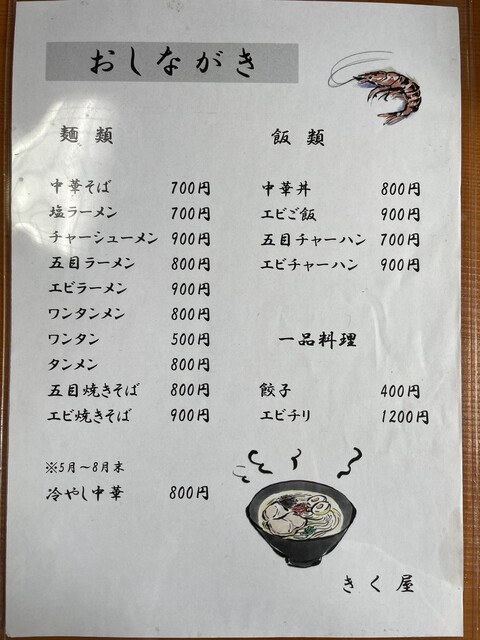 おしながき
麺類
中華そば 700円
塩ラーメン 700円
チャーシューメン 900円
五目ラーメン 800円
エビラーメン 900円
ワンタンメン 800円
ワンタン 500円
タンメン 800円
五目焼きそば 800円
エビ焼きそば 900円
※5月～8月末
冷やし中華 800円
飯類
中華丼 800円
エビご飯 900円
五目チャーハン 700円
エビチャーハン 900円
一品料理
餃子 400円
エビチリ 1200円
きく屋